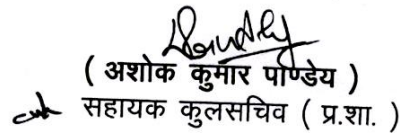 ( अशोक कुमार पाण्डेय )
सहायक कुलसचिव ( प्र.शा. )